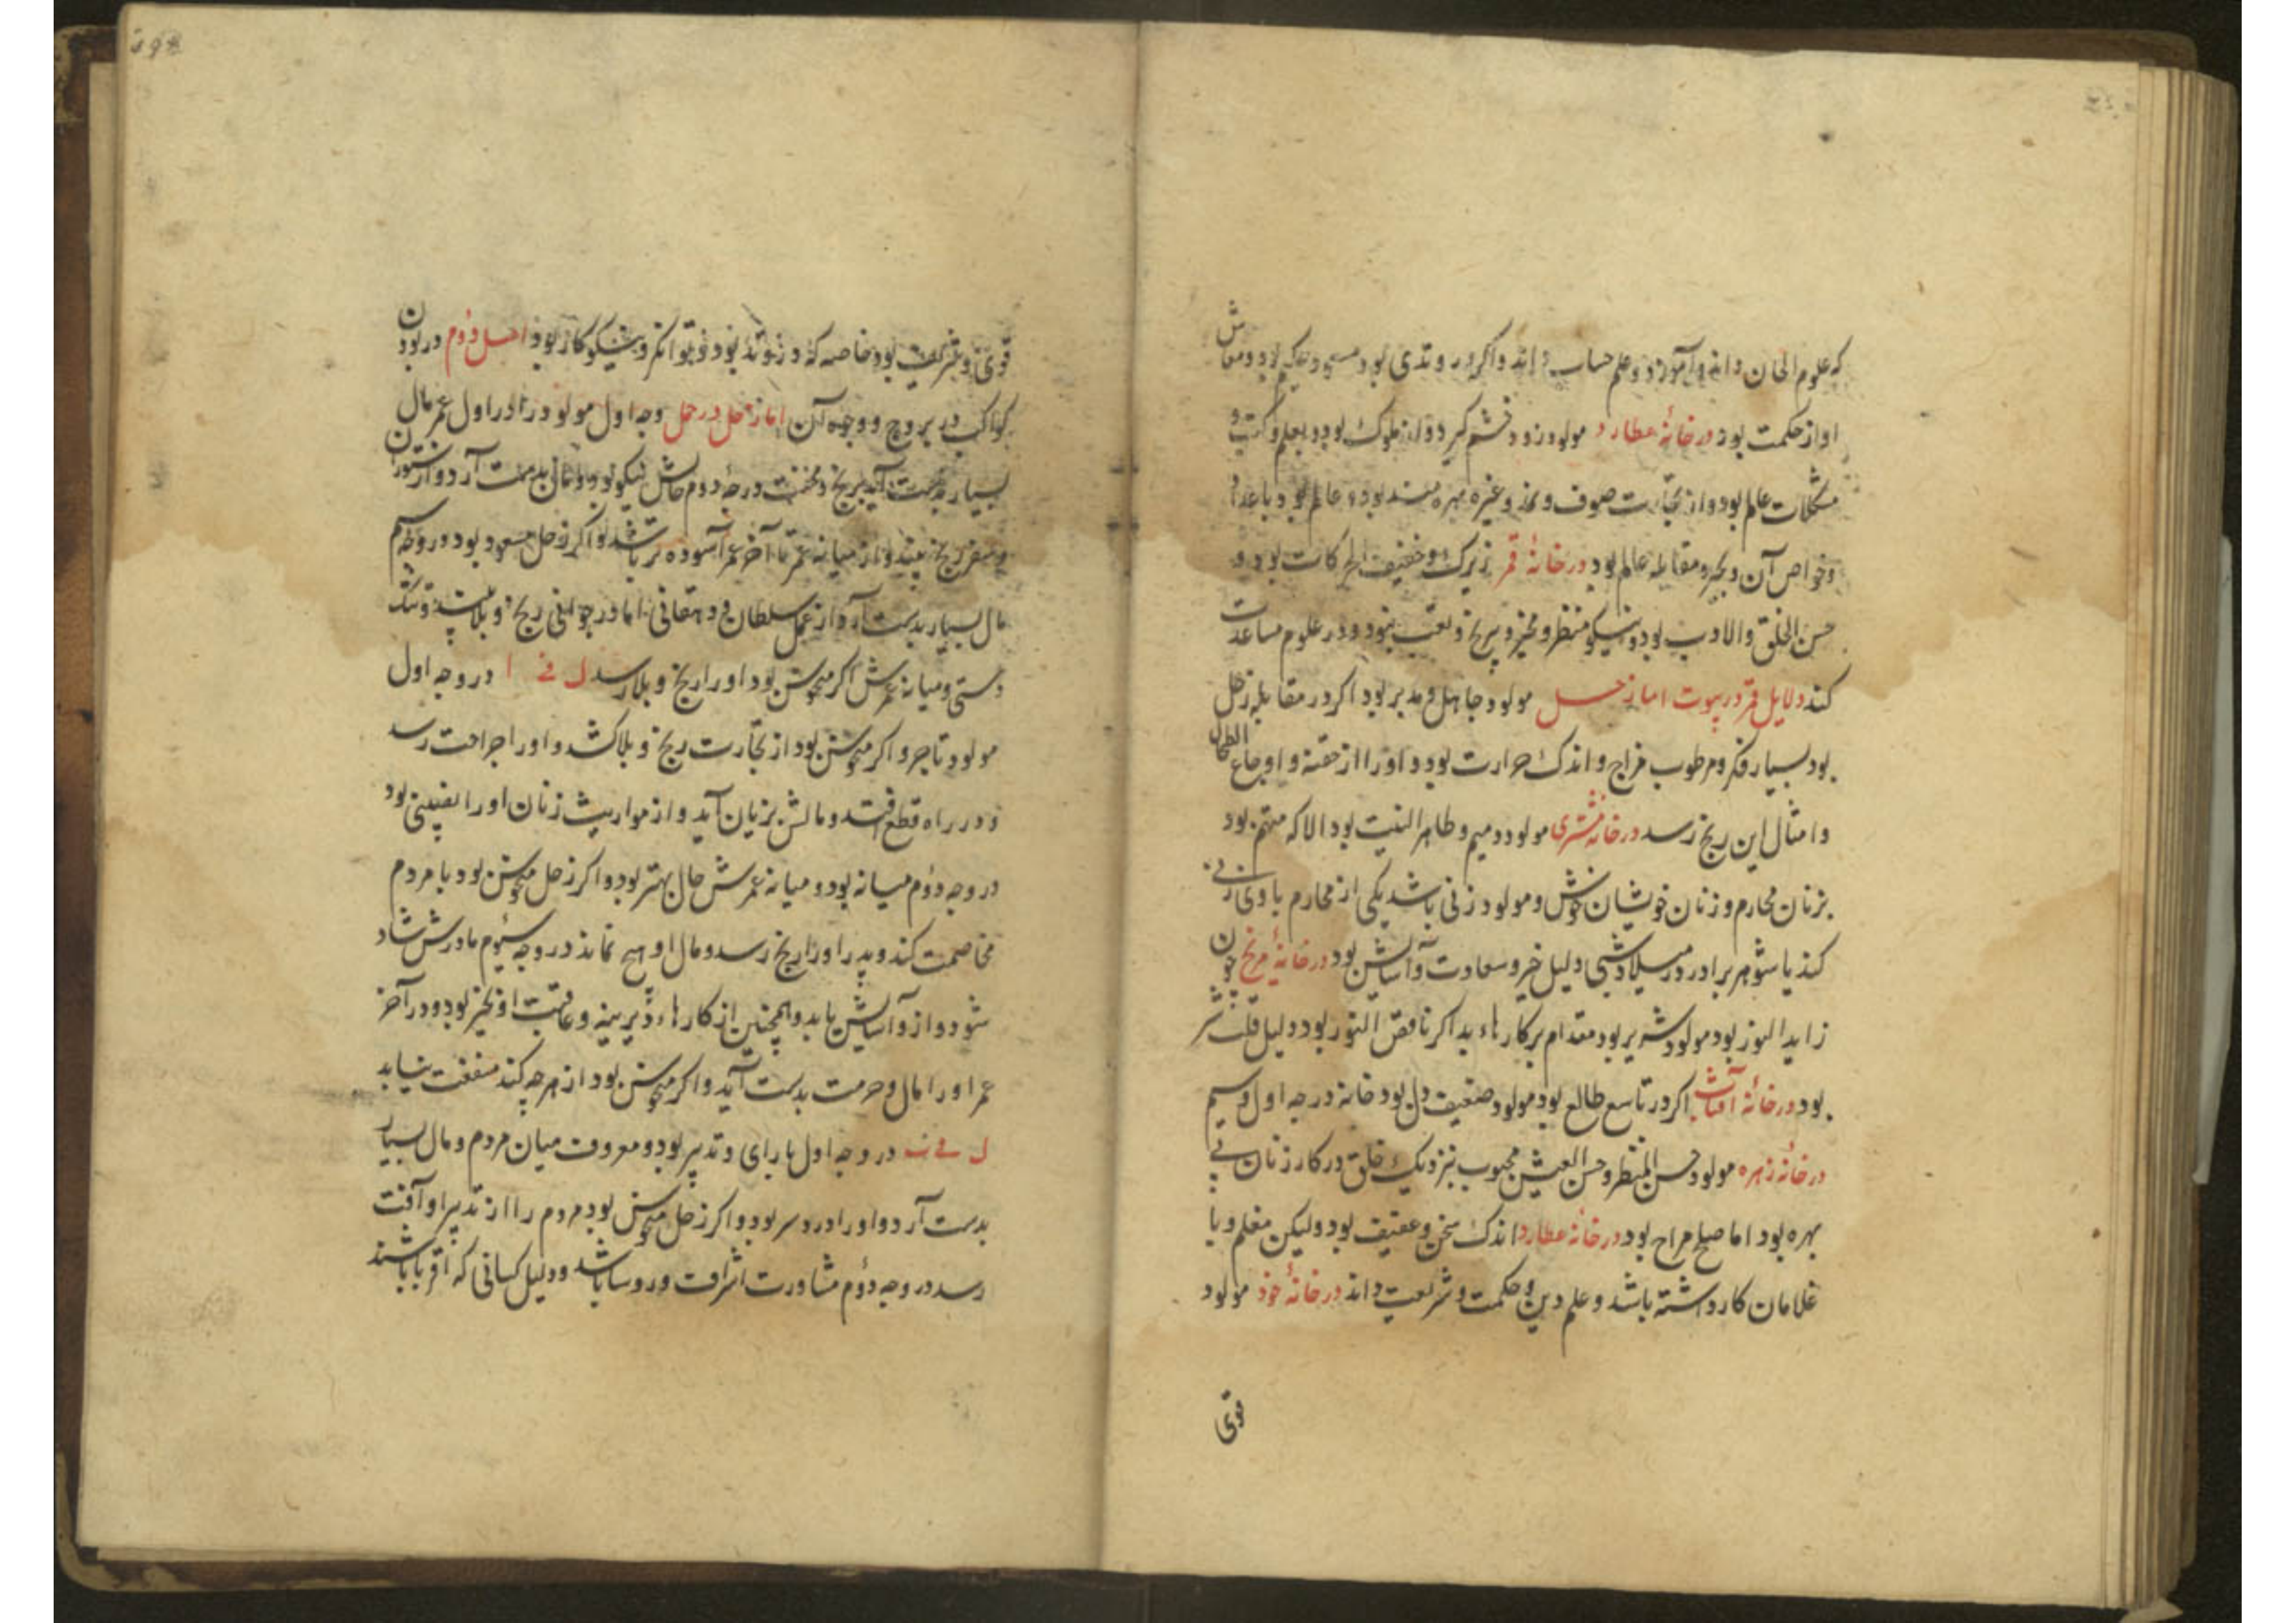 که علوم الحان داند و آموزد و علم حساب داند و اکر در وتدی بود و حکیم بود و معاش
او از حکمت بود در خانهٔ عطارد مولود زود خشم کیرد و از ملوک بود و بعلم و کتب و
مشکلات عالم بود و از تجارت صوف و غیره بهره مند بود و عالم بود باعداد
و خواص آن و بجبر و مقابله عالم بود در خانهٔ قمر زیرک و خفیف الحرکات بود و
حسن الخلق و الادب بود و نیکو منظر و بی رنج و تعب بود و در علوم مساعدت
کند دلایل قمر در بیوت اما زحل مولود جاهل و مدبر بود اکر در مقابله زحل
بود بسیار فکر و مرطوب مزاج و اندک حرارت بود و او را از حقنه و اوجاع الطحال
و امثال این رنج رسد در خانهٔ مشتری مولود و طاهر النیت بود الا که متهم بود
بزنان محارم و زنان خویشان خوش و مولود زنی باشد یکی از محارم با وی زنی
کند یا شوهر برادر در میلاد شبی دلیل خیر و سعادت و آسایش بود در خانهٔ مریخ چون
زاید النور بود مولود شریر بود مقدام بر کارهاء بد اکر ناقص النور بود دلیل قلت شر
بود در خانهٔ آفتاب اکر در تاسع طالع بود مولود ضعیف دل بود خانه در جه اول و سیم
در خانه زهره مولود حسن المنظر و حسن العیش محبوب نزدیک خلق در کار زنان بی
بهره بود اما مزاح بود در خانهٔ عطارد اندک سخن و عفیف بود ولیکن معلم و با
غلامان کار داشته باشد و علم دین و حکمت و شریعت داند در خانهٔ خود مولود
قوی
قوی و شریف بود خاصه که در وتد بود و توانکر و نیکو کار بود اصل دوم در بودن
کواکب در بروج و وجوه آن اما زحل در حمل وجه اول مولود را در اول عمر مال
بسیار بدست آید برنج و محنت درجه دوم حالش نیکو بود و مال بدست آرد و از ستوران
و سفر رنج بیند و از میانه عمر تا آخر عمر آسوده تر باشد و اکر زحل مسعود بود در وجه سیم
مال بسیار بدست آرد از عمل سلطان و دهقانی اما در جوانی رنج و بلا بیند و تنک
دستی و میانه عمرش اکر منحوس بود او را رنج و بلا رسد ل فی ا در وجه اول
مولود تاجر و اکر منحوس بود از تجارت رنج و بلا کشد و او را جراحت رسد
و در راه قطع افتد و مالش بزیان آید و از مواریث زنان او را نصیبی بود
در وجه دوم میانه بود و میانه عمرش حال بهتر بود و اکر زحل منحوس بود با مردم
مخاصمت کند و پدر او را رنج رسد و مال او هیچ نماند در وجه سیوم مادرش شاد
شود و از و آسایش یابد و همچنین از کارهاء دیرینه و عاقبت او بخیر بود و در آخر
عمر او را مال و حرمت بدست آید و اکر منحوس بود از هر چه کند منفعت نیابد
ل فی در وجه اول با رای و تدبیر بود و معروف میان مردم و مال بسیار
بدست آرد و او را درد سر بود و اکر زحل منحوس بود مردم را از تدبیر او آفت
رسد در وجه دوم مشاورت اشراف و روسا باشد و دلیل کسانی که اقربا باشند